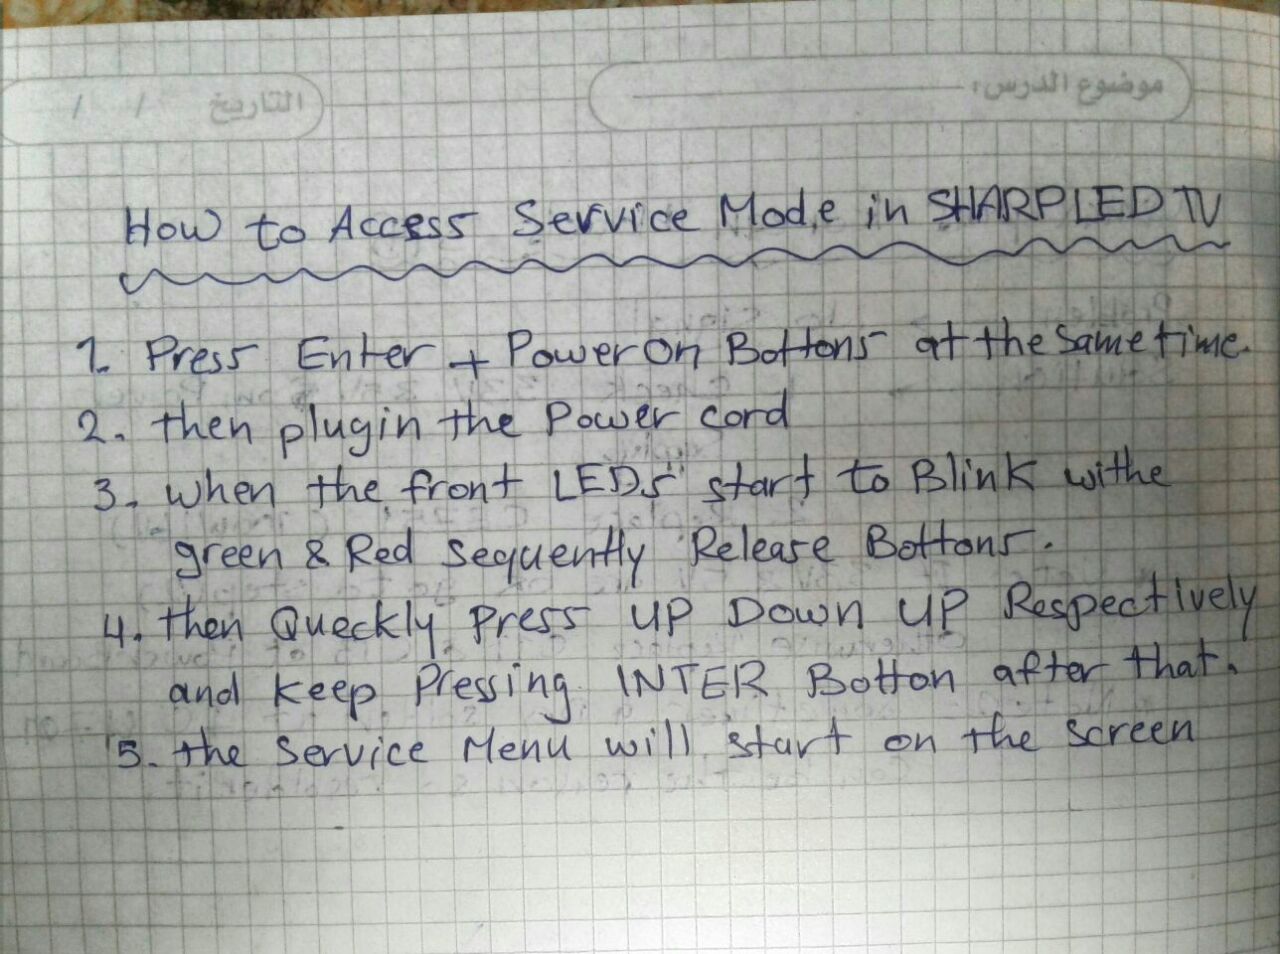 موضوع الدرس:
التاريخ / /
How to Access Service Mode in SHARP LED TV
1. Press Enter + Power on Bottons at the same time.
2. then plugin the Power cord
3. when the front LEDs start to Blink withe
green & Red sequently Release Bottons.
4. then Queckly press UP DOWN UP Respectively
and keep Pressing INTER Botton after that.
5. the Service Menu will start on the screen